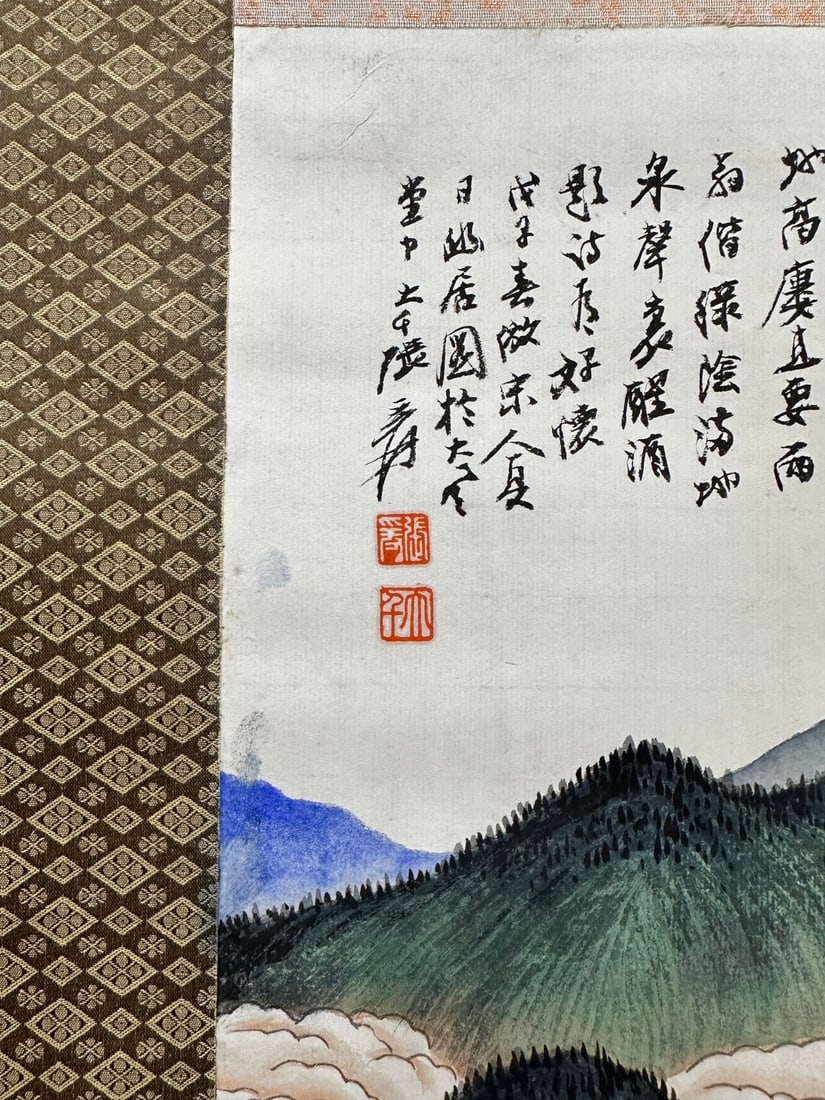 地高廔直要兩
翁偕綠陰滿地
泉聲裏醒酒
題詩有好懷
戊子春倣宋人夏
日幽居圖於大風
堂中大千張爰
張爰
大千